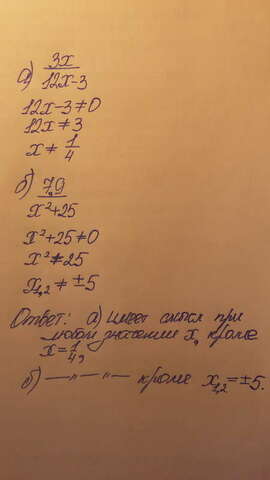 а) 3x/12x-3
12x-3≠0
12x≠3
x≠1/4
б) 7,9/x²+25
x²+25≠0
x²≠25
x₁,₂≠±5
Ответ: а) имеет смысл при
любом значении x, кроме
x=1/4,
б) —〃—〃— кроме x₁,₂=±5.